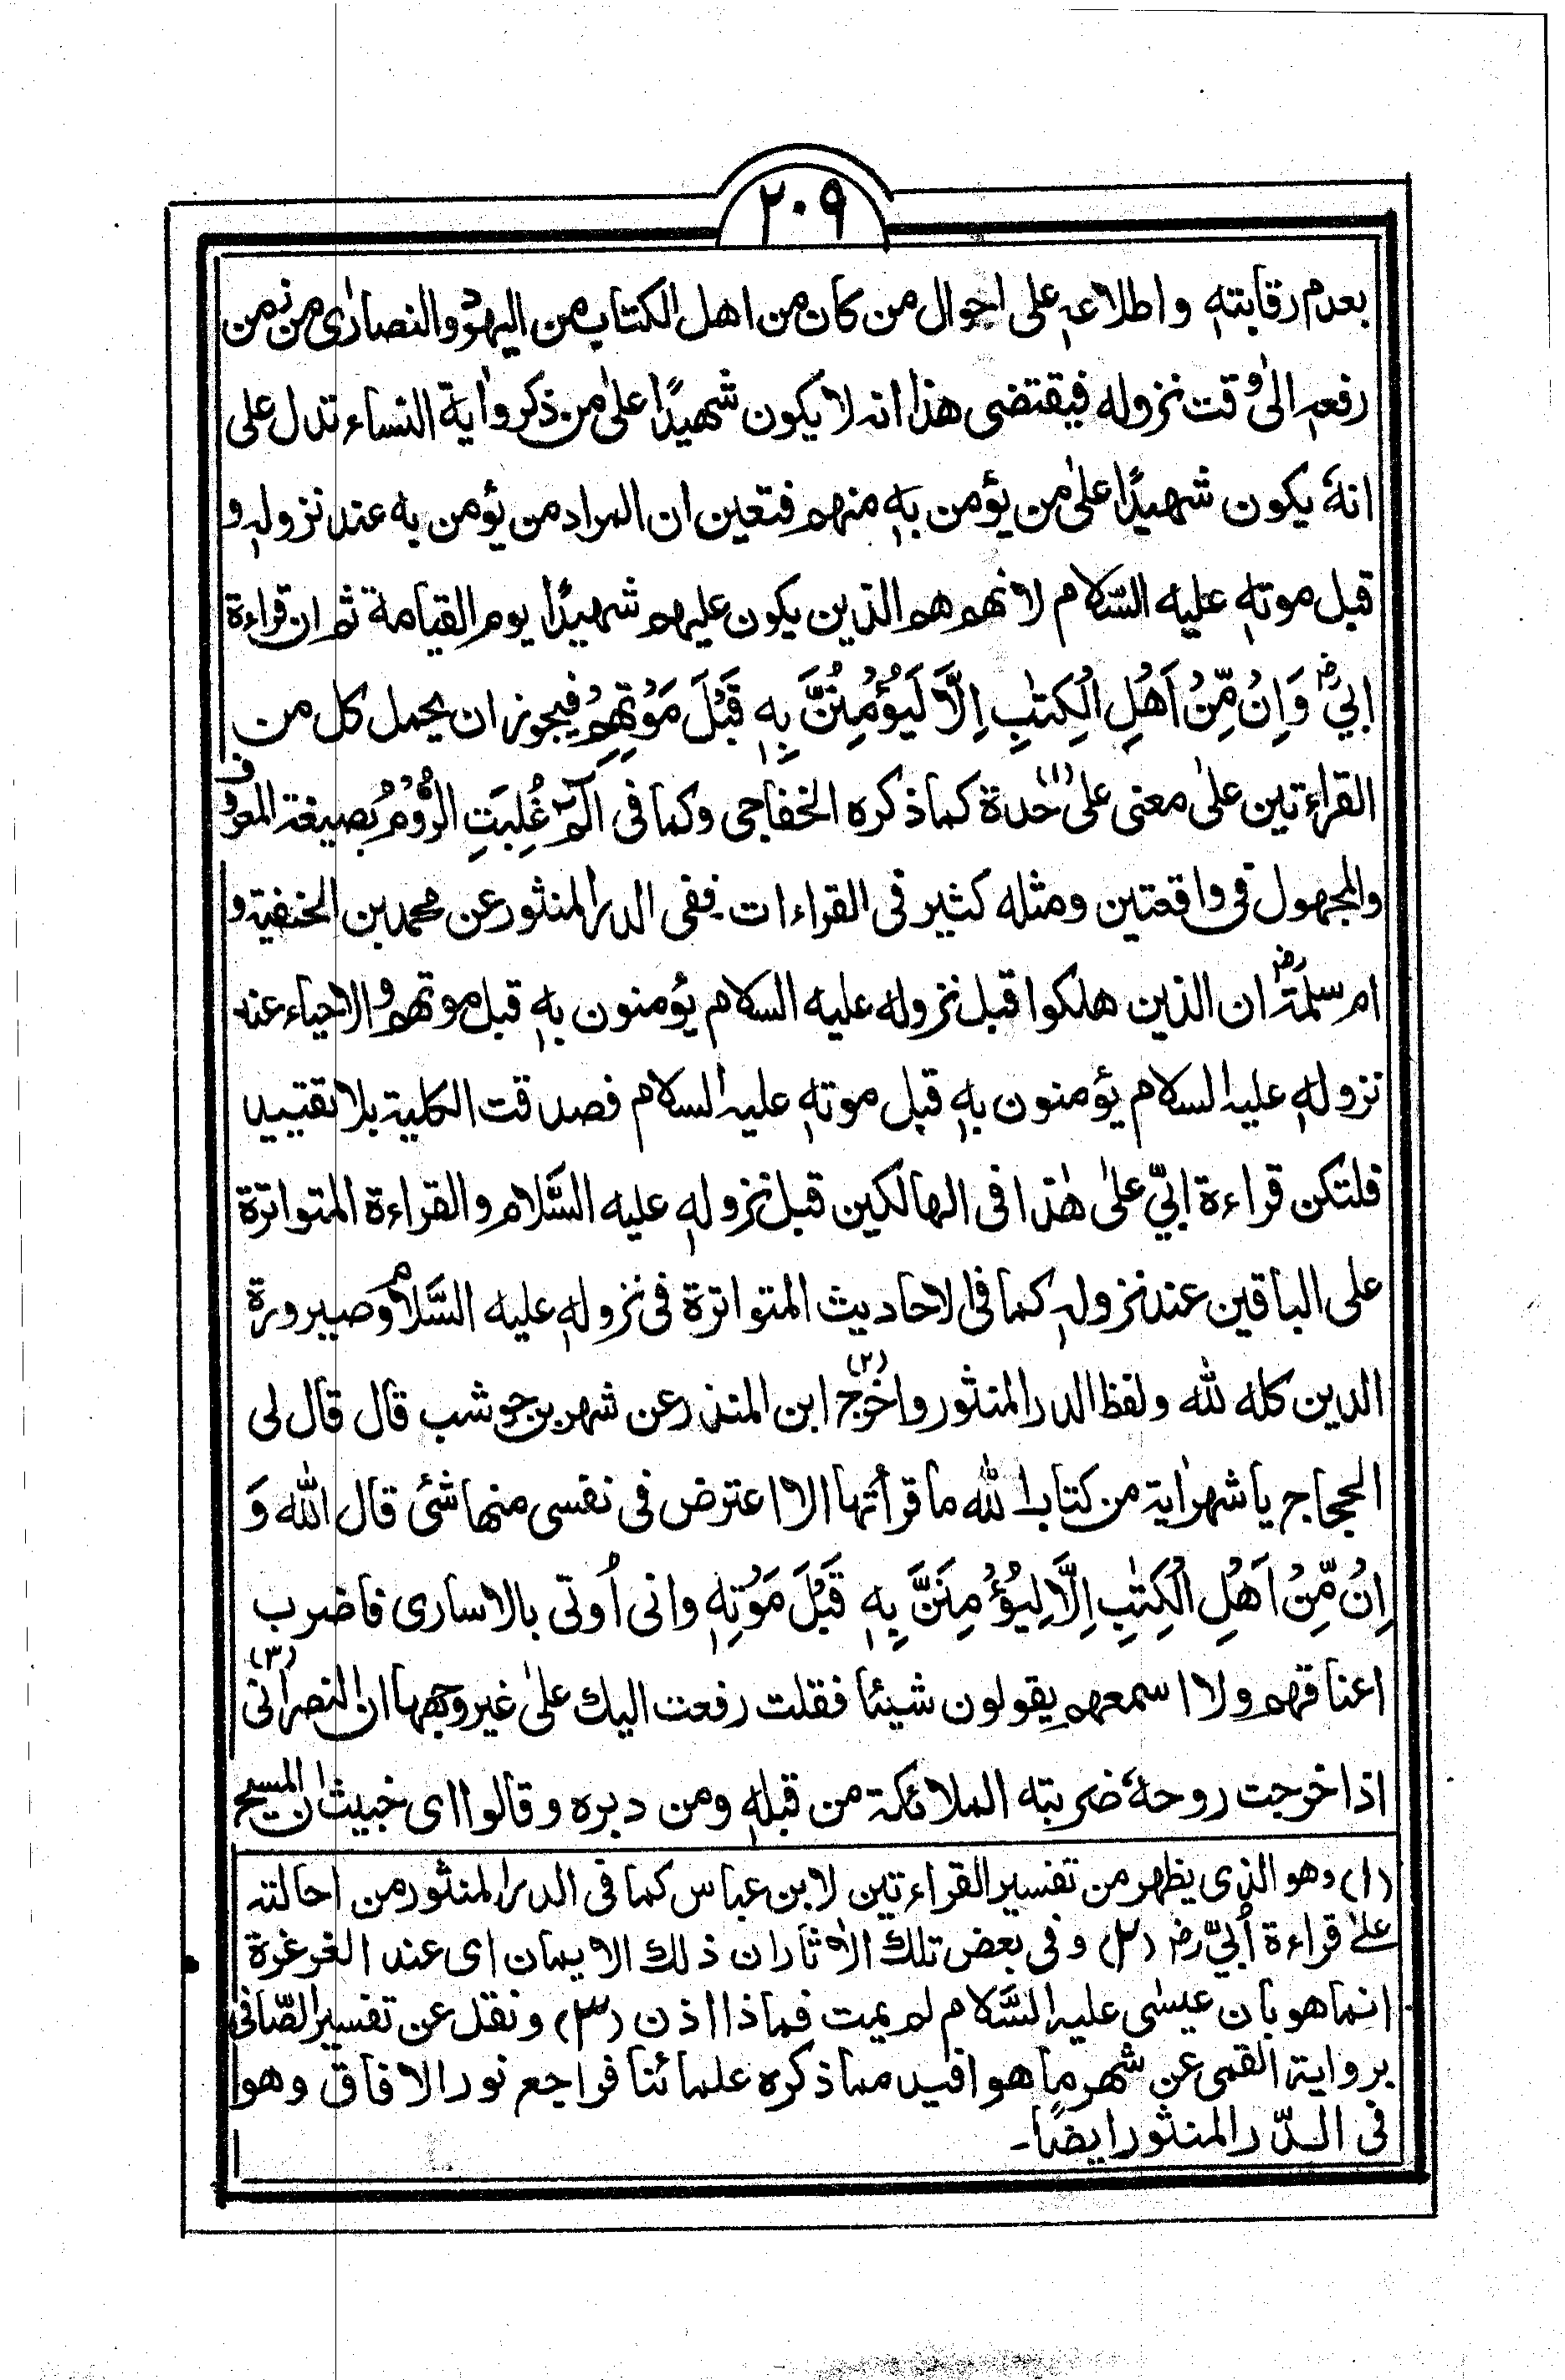 ٢٠٩
بعدم رقابتهٖ واطلاعہٖ على احوال من كان من اهل الكتاب من اليهود والنصارٰى من زمن
رفعہٖ الىٰ وقت نزوله فيقتضى هذا انه لا يكون شهيدًا علىٰ من ذكر واٰية النساء تدل على
انهٗ يكون شهيدًا علىٰ من يؤمن بهٖ منهم فتعين ان المراد من يؤمن به عند نزولهٖ و
قبل موتهٖ عليه السّلام لانهم هم الذين يكون عليهم شهيدًا يوم القيامة ثم ان قراءة
ابيؓ وَاِنْ مِّنْ اَهْلِ الْكِتٰبِ اِلَّا لَيُؤْمِنُنَّ بِهٖ قَبْلَ مَوْتِهِمْ فيجوز ان يحمل كل من
القراءتين علىٰ معنى علىٰ حدة (١) كما ذكره الخفاجى وكما فى الٓمّٓ غُلِبَتِ الرُّوْمُ بصيغة المعروف
والمجهول فى واقعتين ومثله كثير فى القراءات۔ ففى الدر المنثور عن محمد بن الحنفية و
ام سلمةؓ ان الذين هلكوا قبل نزوله عليه السلام يؤمنون بهٖ قبل موتهم والاحياء عند
نزولهٖ عليه السلام يؤمنون بهٖ قبل موتهٖ عليه السلام فصدقت الكلية بلا تقييد
فلتكن قراءة ابيّ علىٰ هٰذا فى الهالكين قبل نزولهٖ عليه السَّلام والقراءة المتواترة
على الباقين عند نزولهٖ كما فى الاحاديث المتواترة فى نزولهٖ عليه السَّلام وصيرورة
الدين كله لله ولفظ الدر المنثور واخرج (٢) ابن المنذر عن شهر بن حوشب قال قال لى
الحجاج يا شهر اٰية من كتاب الله ما قرأتها الا اعترض فى نفسى منها شئ قال الله وَ
اِنْ مِّنْ اَهْلِ الْكِتٰبِ اِلَّا لِيُؤْمِنَنَّ بِهٖ قَبْلَ مَوْتِهٖ وانى اُوتى بالاسارى فاضرب
اعناقهم ولا اسمعهم يقولون شيئا فقلت رفعت اليك علىٰ غير وجهها ان النصرانى (٣)
اذا خرجت روحهٗ ضربته الملائكة من قبلهٖ ومن دبره وقالوا اى خبيث ان المسيح
(١) وهو الذى يظهر من تفسير القراءتين لابن عباس كما فى الدر المنثور من احالته
علىٰ قراءة اُبيّ رضـ (٢) وفى بعض تلك الاٰثار ان ذلك الايمان اى عند الغرغرة
انما هو بان عيسٰى عليه السَّلام لم يمت فماذا اذن (٣) ونقل عن تفسير الصّافى
برواية القمى عن شهر ما هو افيد مما ذكره علمائنا فراجع نور الافاق وهو
فى الدّر المنثور ايضًا۔